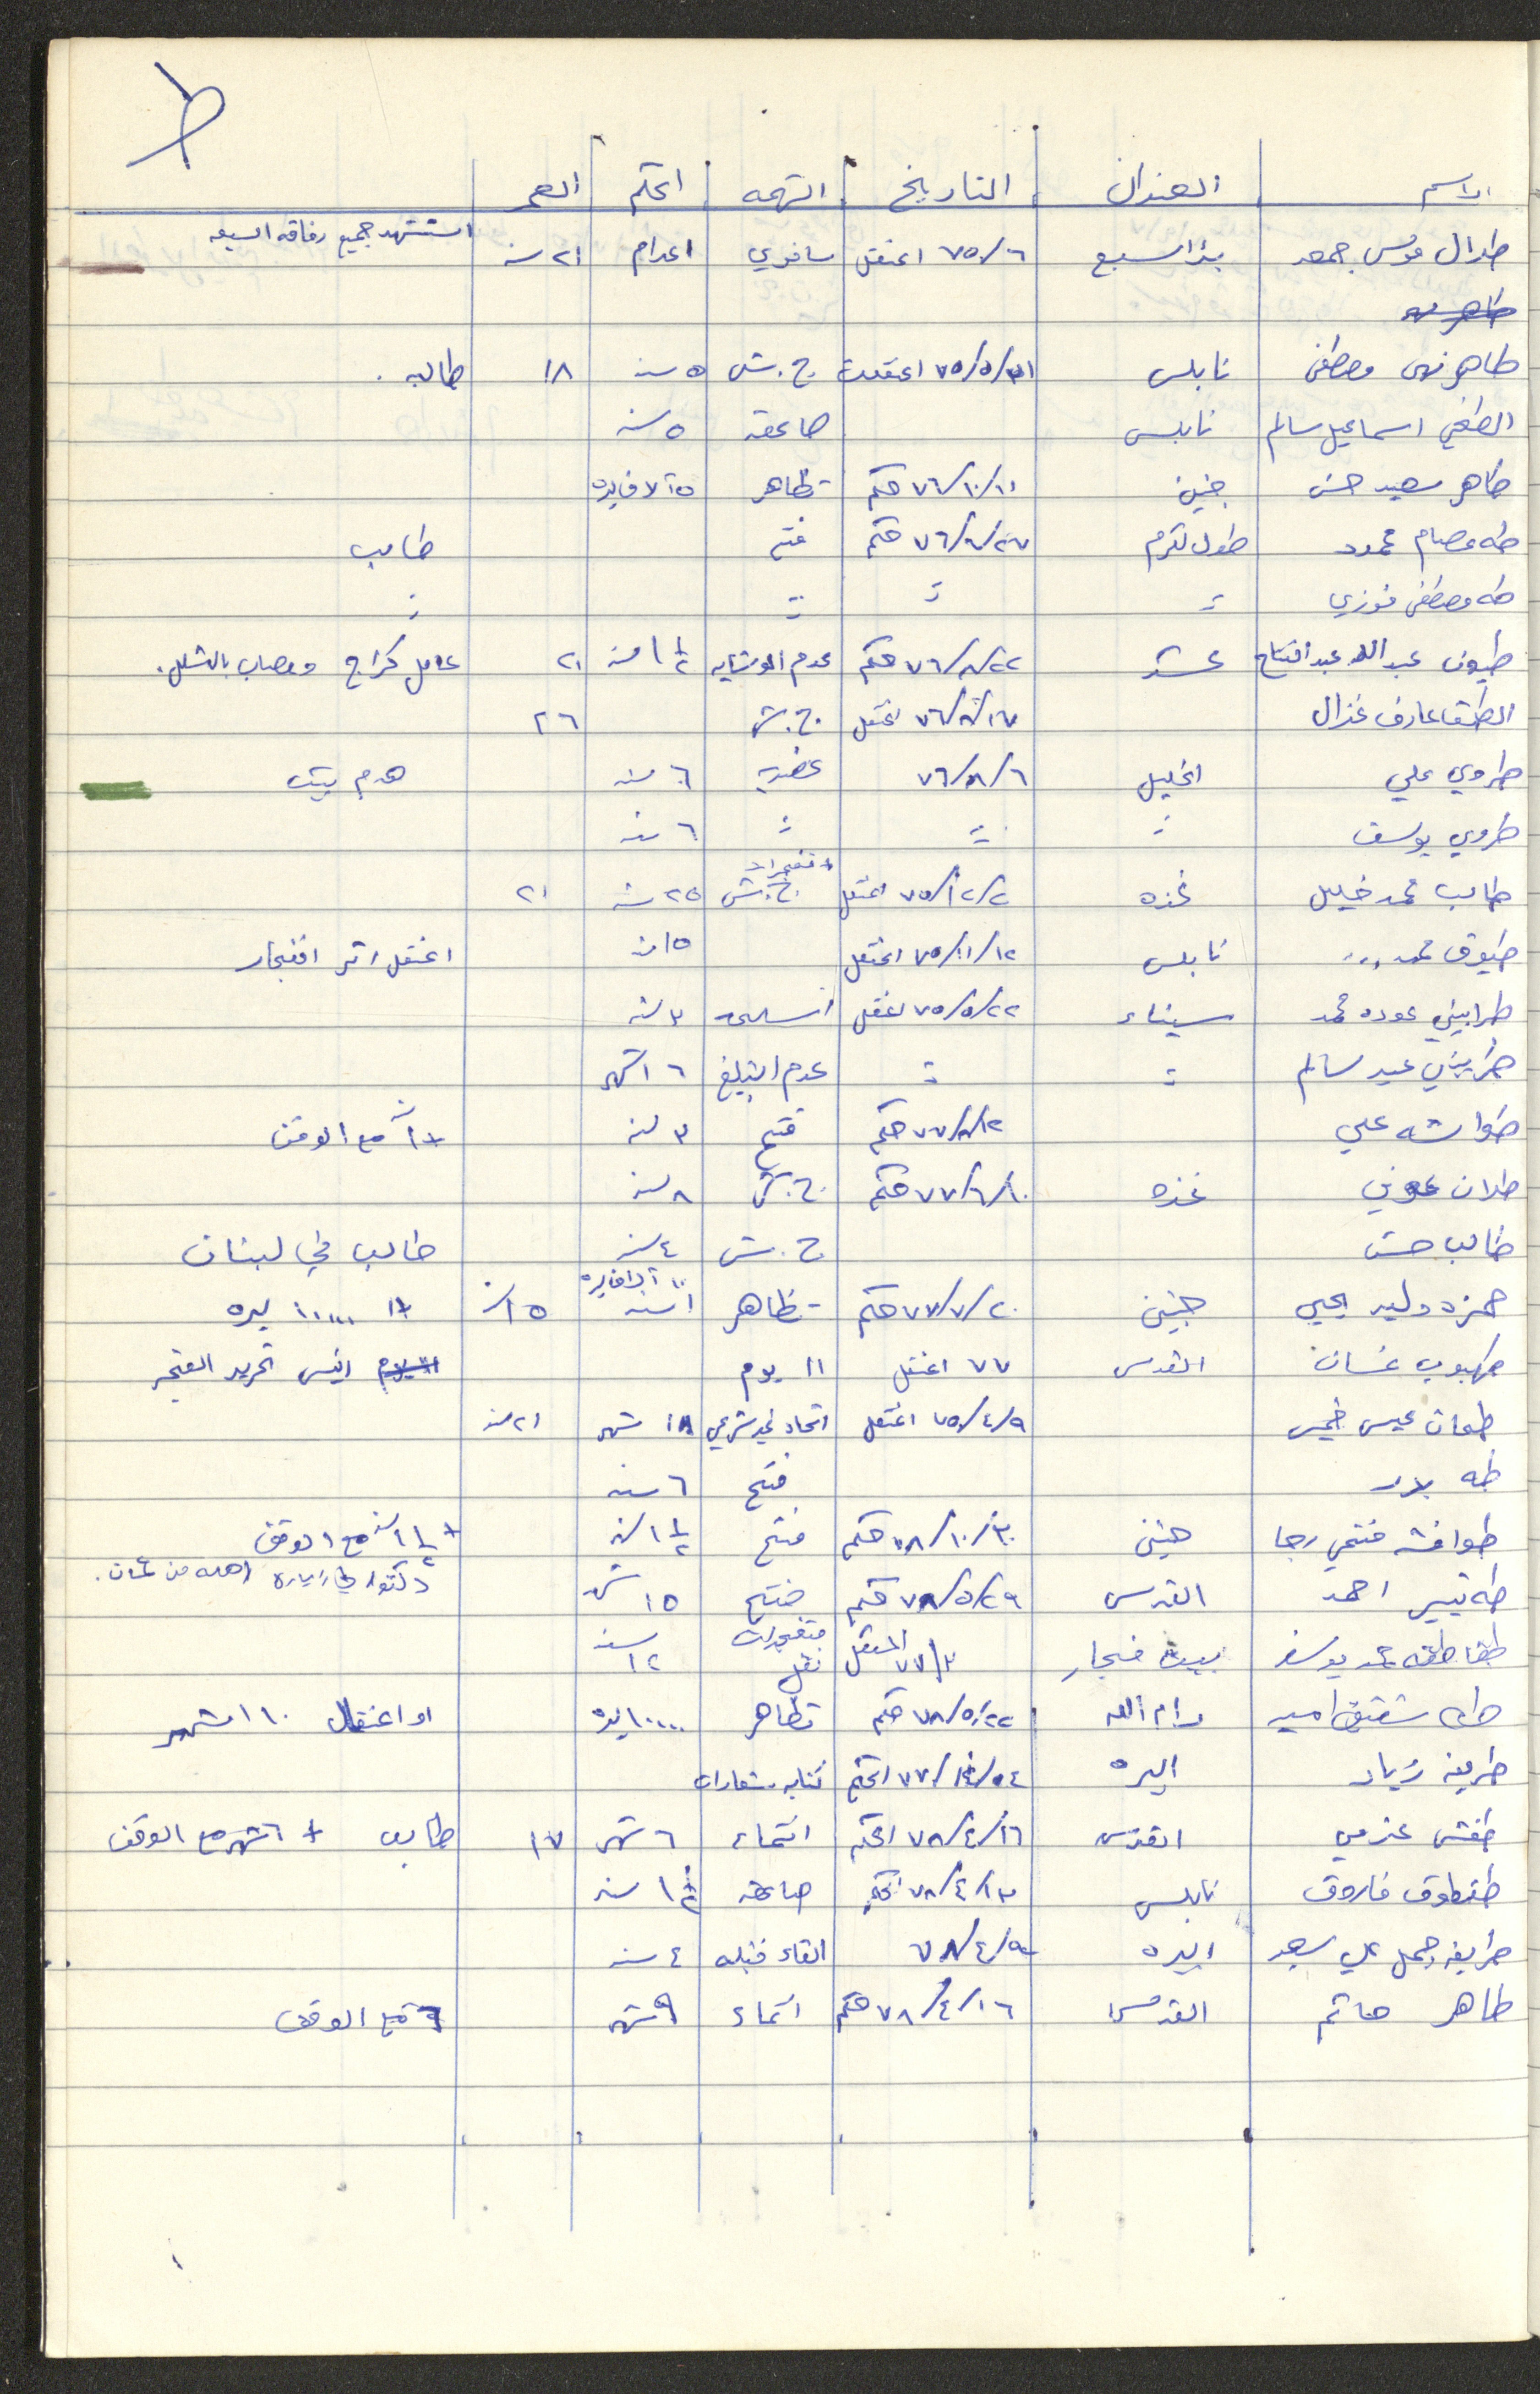 ط
الاسم العنوان التاريخ التهمه الحكم العمر
طلال موسى جمعه بئر السبع ٧٥/٦ اعتقل سافوي اعدام ٢١ سنه استشهد جميع رفاقه السبعه
طاهر نهى مصطفى نابلس ٧٥/٥/٣١ اعتقلت ج.ش ٥ سنه ١٨ طالبه.
اسماعيل سالم نابلس صاعقه ٥ سنه
طاهر سعيد حسن جنين ٧٦/١٠/١١ حكم تظاهر ٥ آلاف ليره
طه عصام محمود طولكرم حكم فتح طالب
طه مصطفى فوزي " " " "
طيون عبد الله عبد الفتاح ٧٦/٨/٢٢ حكم عدم الوشايه ١ ١/٢ سنه ٢١ عامل كراج ومصاب بالشلل.
عارف غزال ٧٦/٨/١٧ اعتقل ج.ش ٢٦
طروي علي الخليل ٧٦/٨/٦ عضويه ٦ سنه هدم بيته
طروي يوسف " " " ٦ سنه
طالب محمد خليل غزه ٧٥/١٢/٢ اعتقل ج.ش + متفجرات ٢٥ سنه ٢١
طيوق محمد ... نابلس ٧٥/١١/١٢ اعتقل ١٥ سنه اعتقل اثر انفجار
طرابيني عوده محمد سيناء ٧٥/٥/٢٢ اعتقل اسلحه ٣ سنه
طرابيني عيد سالم " " عدم التبليغ ٦ اشهر
طواشه علي حكم فتح ٣ سنه مع الوقف
علان عوني غزه ٧٧/٦/١٠ حكم ج.ش ٨ سنه
طالب حسن ج.ش ٤ سنه طالب في لبنان
حمزه وليد يحيى جنين ٧٧/٧/٢٠ حكم تظاهر ١ سنه ١٠ آلاف ليره ١٥ سنه ليره
طهبوب غسان القدس ٧٧ اعتقل ١١ يوم رئيس تحرير الفجر
طعان عيسى خميس ٧٥/٤/٩ اعتقل اتحاد غير شرعي ١٨ شهر ٢١ سنه
طه بدر فتح ٦ سنه
طوافشه فتحي رجا جنين ٧٨/١٠/٣٠ حكم فتح ١ ١/٢ سنه + ١ ١/٢ سنه مع الوقف
طه تيسير احمد القدس ٧٨/٥/٢٩ حكم فتح ١٥ شهر دكتور في زيارة اهله من عمان.
طقاطقه محمد يوسف بيت فجار ٧٧/٣ اعتقل نقل متفجرات ١٢ سنه
شقيق امير رام الله ٧٨/٥/٢٢ حكم تظاهر ليره او اعتقال ١٠ اشهر
طريفه زياد البيره الحكم كتابه شعارات
طفش عزمي القدس ٧٨/٤/١٦ الحكم انتماء ٦ شهر ١٧ طالب + ٦ شهر مع الوقف
طقطوق فاروق نابلس ٧٨/٤/١٣ الحكم صاعقه سنه
طريفه جمل علي سعد البيره القاء قنبله ٤ سنه
طاهر حاتم القدس ٧٨/٤/١٦ حكم انتماء ٩ شهر + ٩ مع الوقف